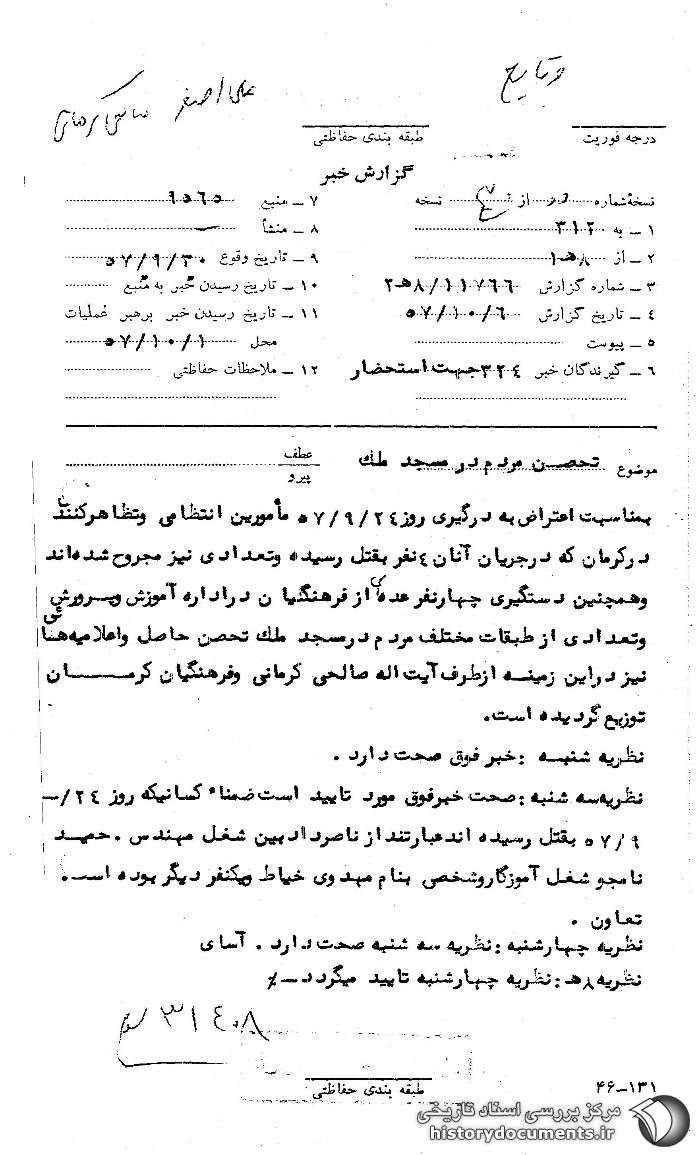 وقایع
علی اصغر
درجه فوریت
طبقه بندی حفاظتی
گزارش خبر
نسخهٔ شماره از نسخه
۱ ــ به ۳۱۲
۲ ــ از ۸هـ۱
۳ ــ شماره گزارش ۸/۱۱۷۶۶هـ۲
۴ ــ تاریخ گزارش ۵۷/۱۰/۶
۵ ــ پیوست
۶ ــ گیرندگان خبر ۳۲۴جهت استحضار
۷ ــ منبع ۹۵۶۵
۸ ــ منشأ ــ
۹ ــ تاریخ وقوع ۵۷/۹/۳۰
۱۰ ــ تاریخ رسیدن خبر به منبع
۱۱ ــ تاریخ رسیدن خبر برهبر عملیات
محل ۵۷/۱۰/۱
۱۲ ــ ملاحظات حفاظتی
موضوع تحصن مردم در مسجد ملك
عطف
پیرو
بمناسبت اعتراض به درگیری روز ۵۷/۹/۲۴ مأمورین انتظامی وتظاهرکنندگان
درکرمان که درجریان آنان ۴نفر بقتل رسیده وتعدادی نیز مجروح شده‌اند
وهمچنین دستگیری چهارنفر عده‌ای از فرهنگیان دراداره آموزش وپرورش
وتعدادی از طبقات مختلف مردم درمسجد ملك تحصن حاصل واعلامیه‌هائی
نیز دراین زمینه ازطرف آیت اله صالحی کرمانی وفرهنگیان کرمـــــان
توزیع گردیده است.
نظریه شنبـه : خبر فوق صحت دارد .
نظریه سه شنبه : صحت خبرفوق مورد تایید است ضمناً کسانیکه روز ۲۴/ــ
۵۷/۹ بقتل رسیده اند عبارتند از ناصر دادبین شغل مهندس . حمیـد
نامجو شغل آموزگار وشخصی بنام مهدوی خیاط ویکنفر دیگر بوده اســت.
تعاون .
نظریه چهارشنبه : نظریه سه شنبه صحت دارد . آسای
نظریه ۸هـ : نظریه چهارشنبه تایید میگردد ــ٪
۳۱۴۰۸
طبقه بندی حفاظتی
۴۶ــ۱۳۱
مرکز بررسی اسناد تاریخی
historydocuments.ir